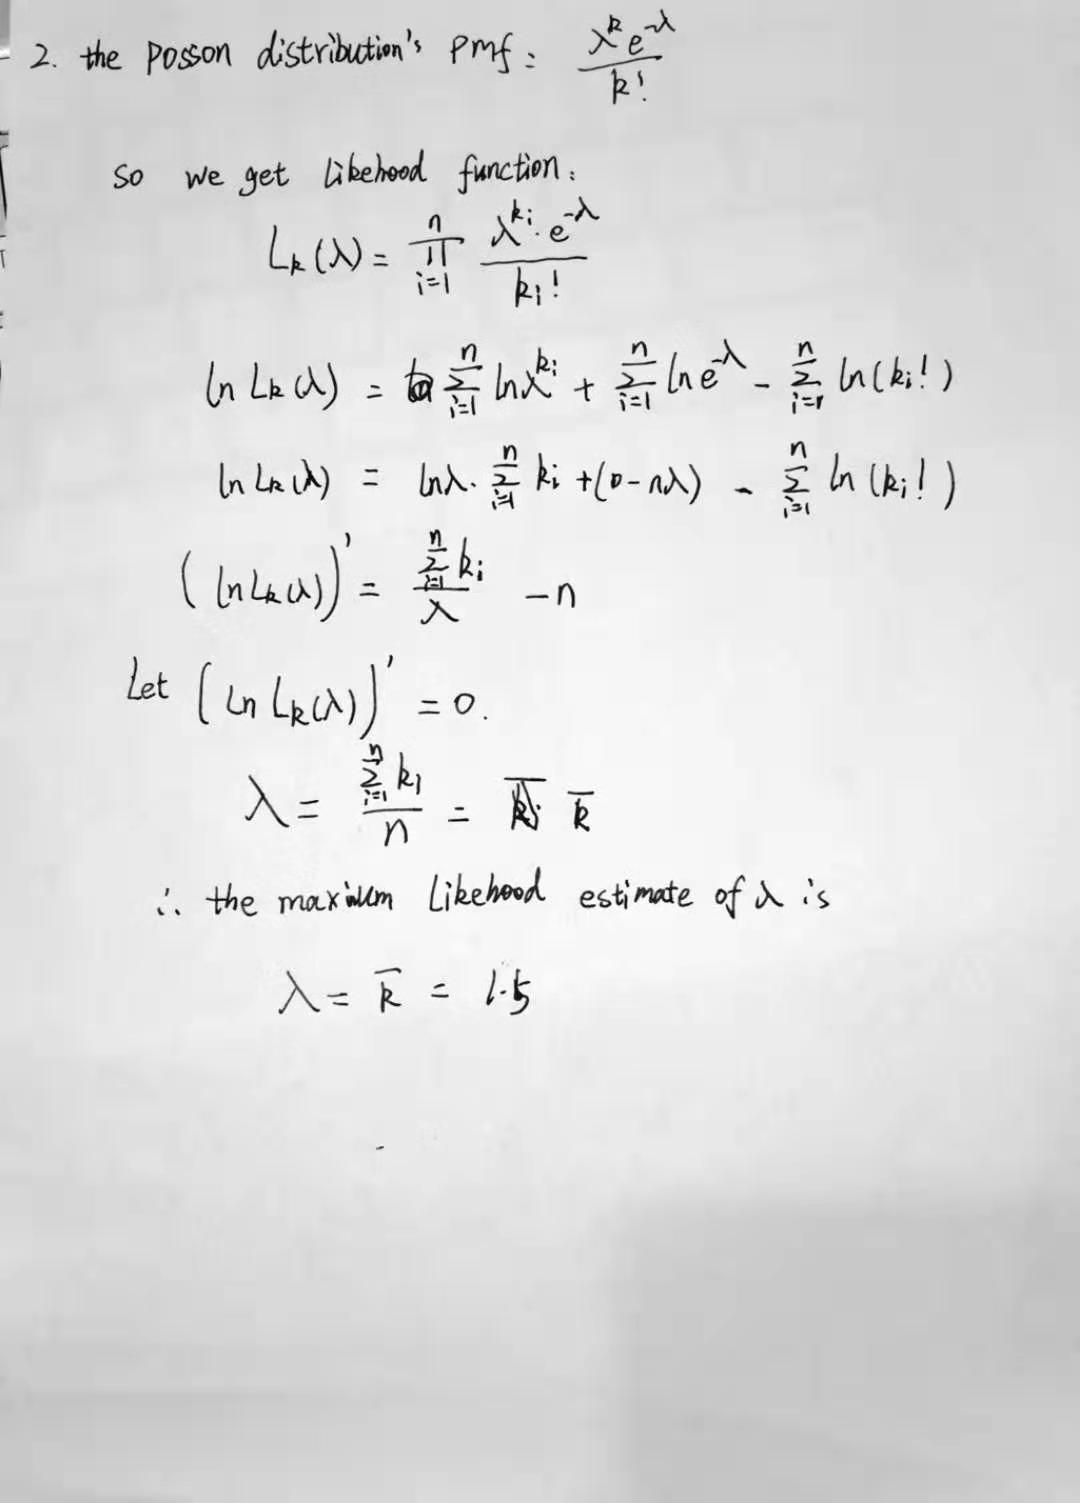 2. the posson distribution's pmf: λ^k e^-λ / k!
so we get likehood function:
L_k(λ) = ∏_{i=1}^{n} λ^{k_i} · e^-λ / k_i!
ln L_k(λ) = ∑_{i=1}^{n} lnλ^{k_i} + ∑_{i=1}^{n} ln e^-λ - ∑_{i=1}^{n} ln(k_i!)
ln L_k(λ) = lnλ · ∑_{i=1}^{n} k_i + (0 - nλ) - ∑_{i=1}^{n} ln(k_i!)
(ln L_k(λ))' = ∑_{i=1}^{n} k_i / λ - n
Let (ln L_k(λ))' = 0.
λ = ∑_{i=1}^{n} k_i / n = k̅
∴ the maximum likehood estimate of λ is
λ = k̅ = 1.5